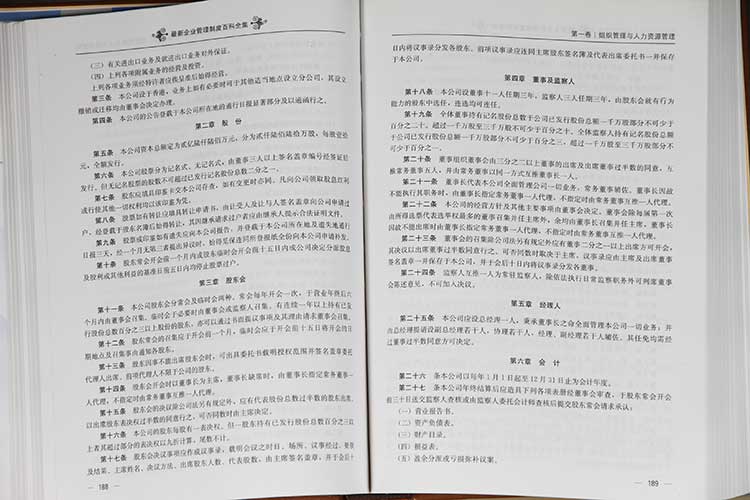 最新企业管理制度百科全集
(三)有关进出口业务及就进出口业务对外保证。
(四)上列各项附属业务的经营及投资。
上列各项业务须经特许者应俟呈准后始得经营。
第三条 本公司设于香港,业务上如有必要时可于其他适当地点设立分公司,其设立
撤销或迁移均由董事会决定办理。
第四条 本公司的公告登载于本公司所在地的通行日报显著部分及以通函行之。
第二章 股 份
第五条 本公司资本总额定为贰亿陆仟陆佰万元,分为贰仟陆佰陆拾万股,每股壹拾
元,全额发行。
第六条 本公司股票分为记名式、无记名式,由董事三人以上签名盖章编号经签证后
发行。但无记名股票的股数不可超过已发行记名股份总数二分之一。
第七条 股东应填具印鉴卡交本公司存查,如有变更时亦同。凡向公司领取股息红利
或行使其他一切权利均以该印鉴为凭。
第八条 股票如有转让应填具转让申请书,由让受人及让与人签名盖章向公司申请过
户,经登载于股东名簿后始得转让,其因继承请求过户者应由继承人提示合法证明文件。
第九条 股票或印鉴如有遗失应向本公司报告,并登载于本公司所在地及遗失地通行
日报三天,经一个月无第三者提出异议时,始得觅保连同所登报纸全份向本公司申请补发。
第十条 股东常会开会前一个月内或股东临时会开会前十五日内或公司决定分派股息
及股利或其他利益的基准日前五日内均停止股票过户。
第三章 股东会
第十一条 本公司股东会分常会及临时会两种,常会每年开会一次,于营业年终后六
个月内由董事会召集。临时会于必要时由董事会或监察人召集。有连续一年以上持有已发
行股份总数百分之三以上股份的股东,亦可以通过书面提议事项及其理由请求董事会召集。
第十二条 股东常会的召集应于开会前一个月,临时会应于开会前十五日将开会的日
期地点及召集事由通知各股东。
第十三条 股东因事不能出席股东会时,可出具委托书载明授权范围并签名盖章委托
代理人出席。前项代理人不限于公司的股东。
第十四条 股东会开会时以董事长为主席,董事长缺席时,由董事长指定常务董事一
人代理,不指定时由常务董事互推一人代理。
第十五条 股东会的决议除公司法另有规定外,应有代表股份总数过半数的股东出席,
以出席股东表决权过半数的同意行之,可否同数时由主席决定。
第十六条 本公司的股东每股有一表决权。但一股东持有已发行股份总数百分之三以
上者其超过部分的表决权以九折计算,尾数不计。
第十七条 股东会决议事项应作成议事录,载明会议之时日、场所、议事经过、要领
及结果、主席姓名、决议方法、出席股东人数、代表股数,由主席签名盖章,并于会后十
— 188 —
第一卷|组织管理与人力资源管理
日内将议事录分发各股东。前项议事录应连同主席股东签名簿及代表出席委托书一并保存
于本公司。
第四章 董事及监察人
第十八条 本公司设董事十一人任期三年,监察人三人任期三年,由股东会就有行为
能力的股东中选任,连选均可连任。
第十九条 全体董事持有记名股份总数于公司已发行股份总额一千万股部分不可少于
百分之二十。超过一千万股至三千万股不可少于百分之十。全体监察人持有记名股份总额
于公司已发行股份总额一千万股部分不可少于百分之三,超过一千万股至三千万股部分不
可少于百分之一。
第二十条 董事组织董事会由三分之二以上董事的出席及出席董事过半数的同意,互
推常务董事五人,并由常务董事以同一方式互推董事长一人。
第二十一条 董事长代表本公司全面管理公司一切业务,常务董事辅佐。董事长因故
不能执行其职务时,由董事长指定常务董事一人代理,不指定时由常务董事互推一人代理。
第二十二条 本公司的经营方针及其他主要事项由董事会决定。董事会除每届第一次
由所得选票代表选举权最多的董事召集并任主席外,余均由董事长召集并任主席,董事长
因故不能出席时由董事长指定常务董事一人代理,不指定时由常务董事互推一人代理。
第二十三条 董事会的召集除公司法另有规定外应有董事二分之一以上出席方可开会,
其决议以出席董事过半数同意行之。可否同数时取决于主席,议事录应由主席及出席董事
签名盖章一并保存于本公司,并于会后十日内将议事录分发各董事。
第二十四条 监察人互推一人为常驻监察人,除依法执行日常监察职务外可列席董事
会陈述意见,不可加入决议。
第五章 经理人
第二十五条 本公司应设总经理一人,秉承董事长之命全面管理本公司一切业务;并
由总经理提请设副总经理若干人,协理若干人、经理、副经理若干人辅佐。其任免均需经
过董事过半数同意方可决定。
第六章 会 计
第二十六 条本公司以每年1月1日起至12月31日止为会计年度。
第二十七 条本公司年终结算后应造具下列各项表册经董事会审查,于股东常会开会
前三十日送交监察人查核或由监察人委托会计师查核后提交股东常会请求承认:
(一)营业报告书。
(二)资产负债表。
(三)财产目录。
(四)损益表。
(五)盈余分派或亏损弥补议案。
— 189 —